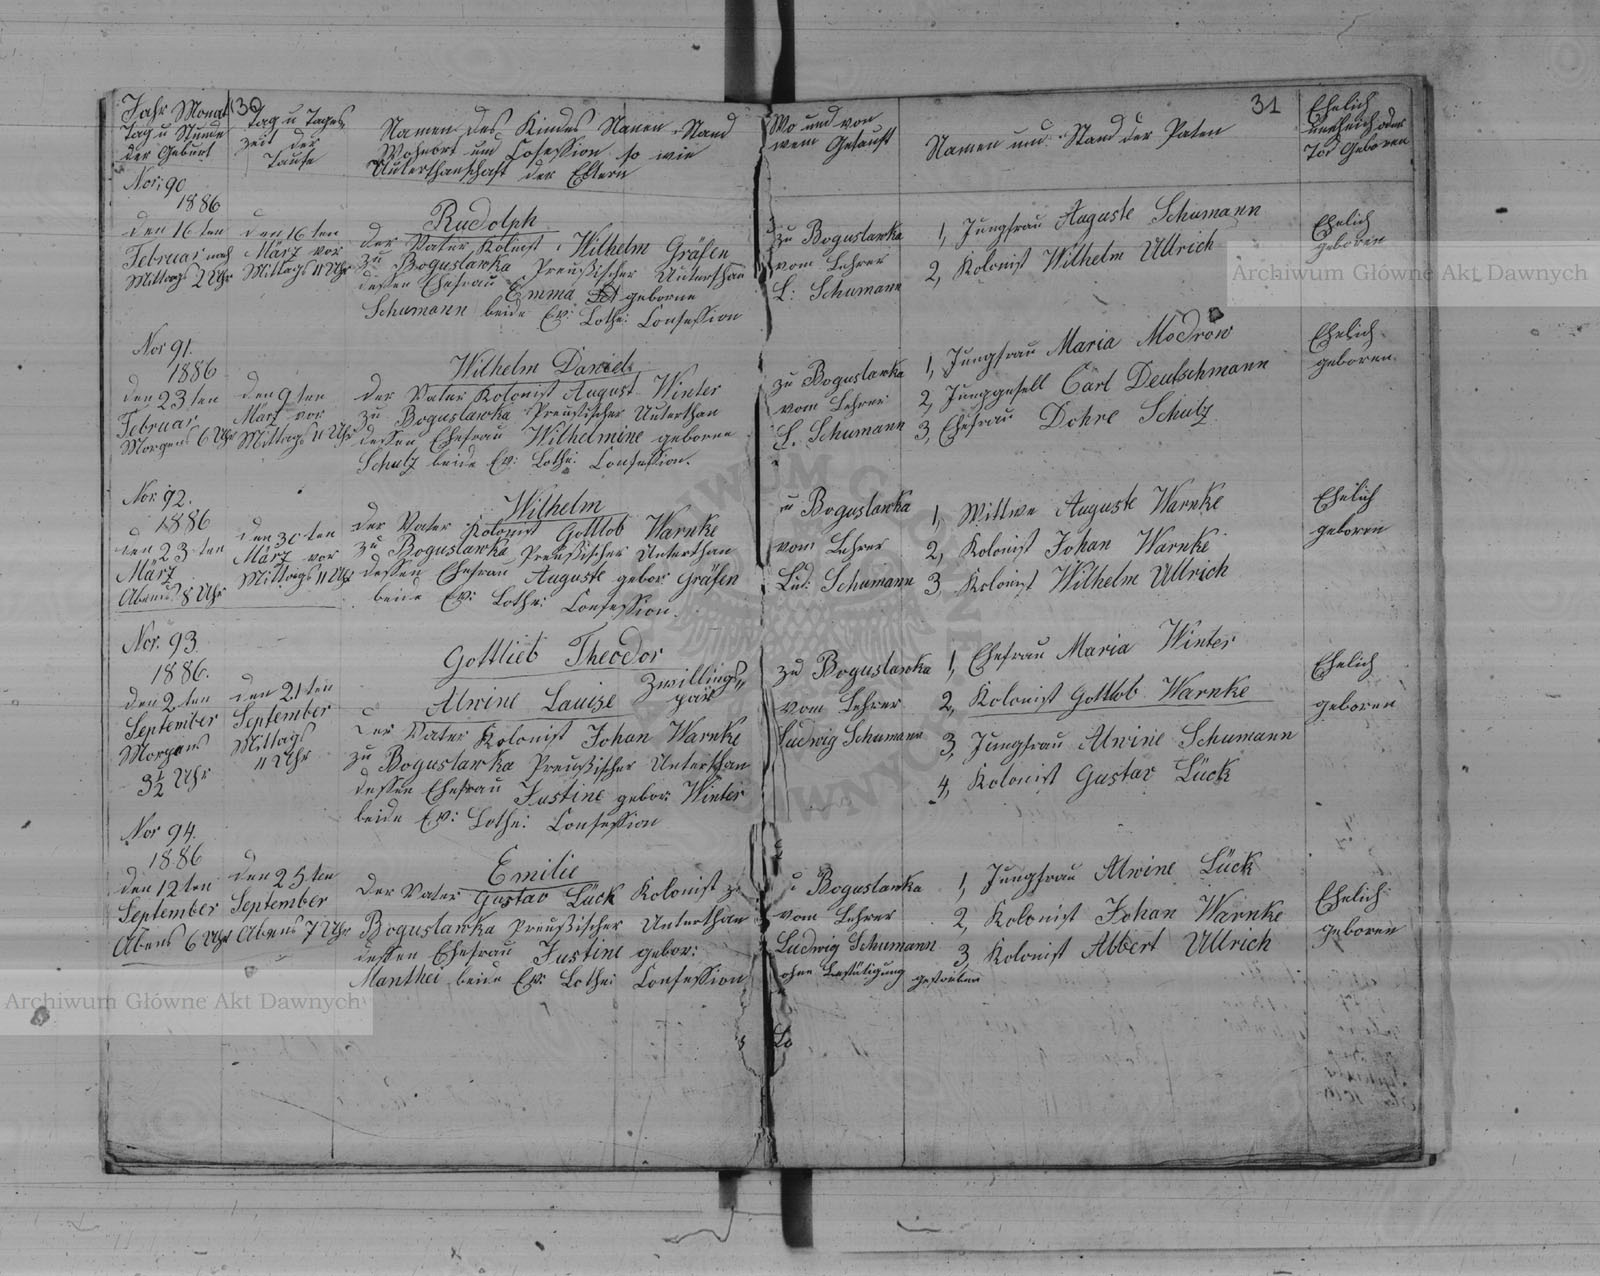 30
Jahr Monat
Tag u Stunde
der Geburt
Tag u Tages
zeit der
Taufe
Namen des Kindes Namen Stand
Wohnort und Cofession so wie
Unterthanschaft der Eltern
Wo und von
wem Getauft
31
Namen und Stand der Paten
Ehelich
unehelich oder
Tod Geboren
Nor: 90
1886
den 16 ten
Februar nach
Mittag 2 Uhr
den 16 ten
März vor
Mittags 11 Uhr
Rudolph
der Vater Kolonist Wilhelm Gräfen
zu Boguslawka Preußischer Unterthan
dessen Ehefrau Emma geborne
Schumann beide Ev: Lothr: Confession
zu Boguslawka
vom Lehrer
L: Schumann
1, Jungfrau Auguste Schumann
2, Kolonist Wilhelm Ullrich
Ehelich
geboren
Nor 91.
1886
den 23 ten
Februar
Morgens 6 Uhr
den 9 ten
März vor
Mittags 11 Uhr
Wilhelm Daniel
der Vater Kolonist August Winter
zu Boguslawka Preußischer Unterthan
dessen Ehefrau Wilhelmine geborne
Schulz beide Ev: Lothr: Confession.
zu Boguslawka
vom Lehrer
L. Schumann
1, Jungfrau Maria Modrow
2, Junggesell Carl Deutschmann
3, Ehefrau Dohre Schulz
Ehelich
geboren
Nor 92.
1886
den 23 ten
März
Abends 8 Uhr
den 30 ten
März vor
Mittags 11 Uhr
Wilhelm
der Vater Kolonist Gottlob Warnke
zu Boguslawka Preußischer Unterthan
dessen Ehefrau Auguste gebor: Gräfen
beide Ev: Lothr: Confession.
u Boguslawka
vom Lehrer
Lud: Schumann
1, Wittwe Auguste Warnke
2, Kolonist Johan Warnke
3, Kolonist Wilhelm Ullrich
Ehelich
geboren
Nor. 93.
1886.
den 2 ten
September
Morgens
3 1/2 Uhr
den 21 ten
September
Mittags
11 Uhr
Gottlieb Theodor
Alwine Lauise Zwillings
paar
der Vater Kolonist Johan Warnke
zu Boguslawka Preußischer Unterthan
dessen Ehefrau Justine gebor: Winter
beide Ev: Lothr: Confession
zu Boguslawka
vom Lehrer
Ludwig Schumann
1, Ehefrau Maria Winter
2, Kolonist Gottlob Warnke
3, Jungfrau Alwine Schumann
4, Kolonist Gustav Lück
Ehelich
geboren
Nor 94.
1886
den 12 ten
September
Abens 6 Uhr
den 25 ten
September
Abens 7 Uhr
Emilie
Der Vater Gustav Lück Kolonist zu
Boguslawka Preußischer Unterthan
dessen Ehefrau Justine gebor:
Manthei beide Ev: Lothr: Confession
u Boguslawka
vom Lehrer
Ludwig Schumann
ohne Bestätigung gestorben
1, Jungfrau Alwine Lück
2, Kolonist Johan Warnke
3 Kolonist Albert Ullrich
Ehelich
geboren
Archiwum Główne Akt Dawnych
Archiwum Główne Akt Dawnych